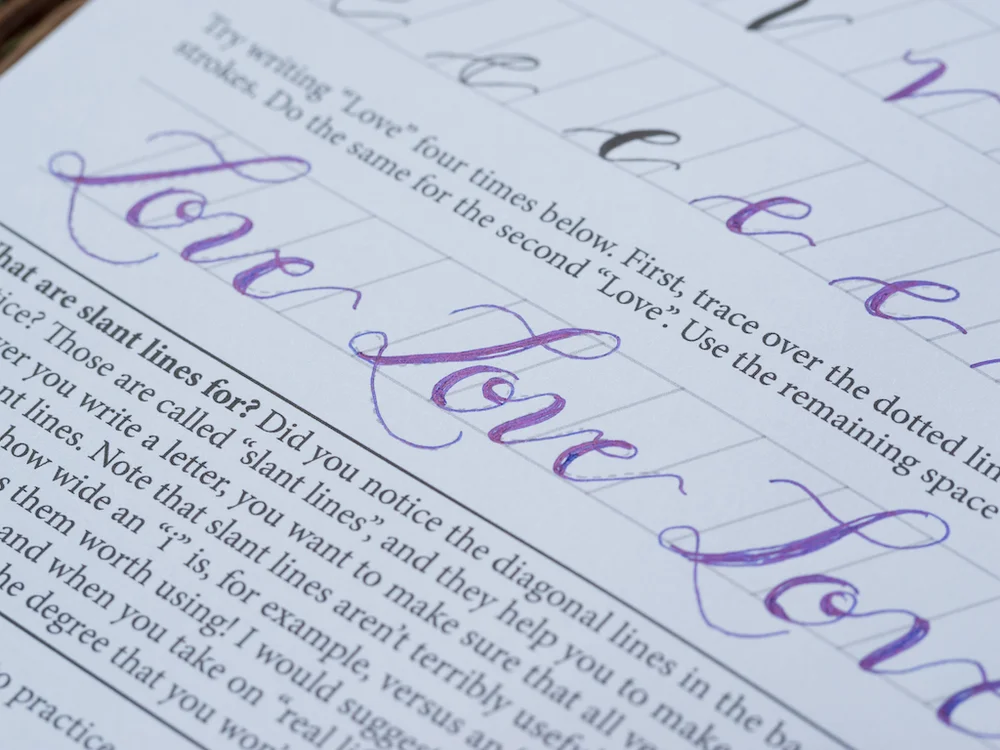 v v
e e e e e
Try writing "Love" four times below. First, trace over the dotted
strokes. Do the same for the second "Love". Use the remaining space
Love Love Love
What are slant lines for? Did you notice the diagonal lines in the
Those are called "slant lines", and they help you to make
you write a letter, you want to make sure that all
lines. Note that slant lines aren't terribly
how wide an "i" is, for example, versus an
them worth using! I would suggest
and when you take on "real
degree that you
practice